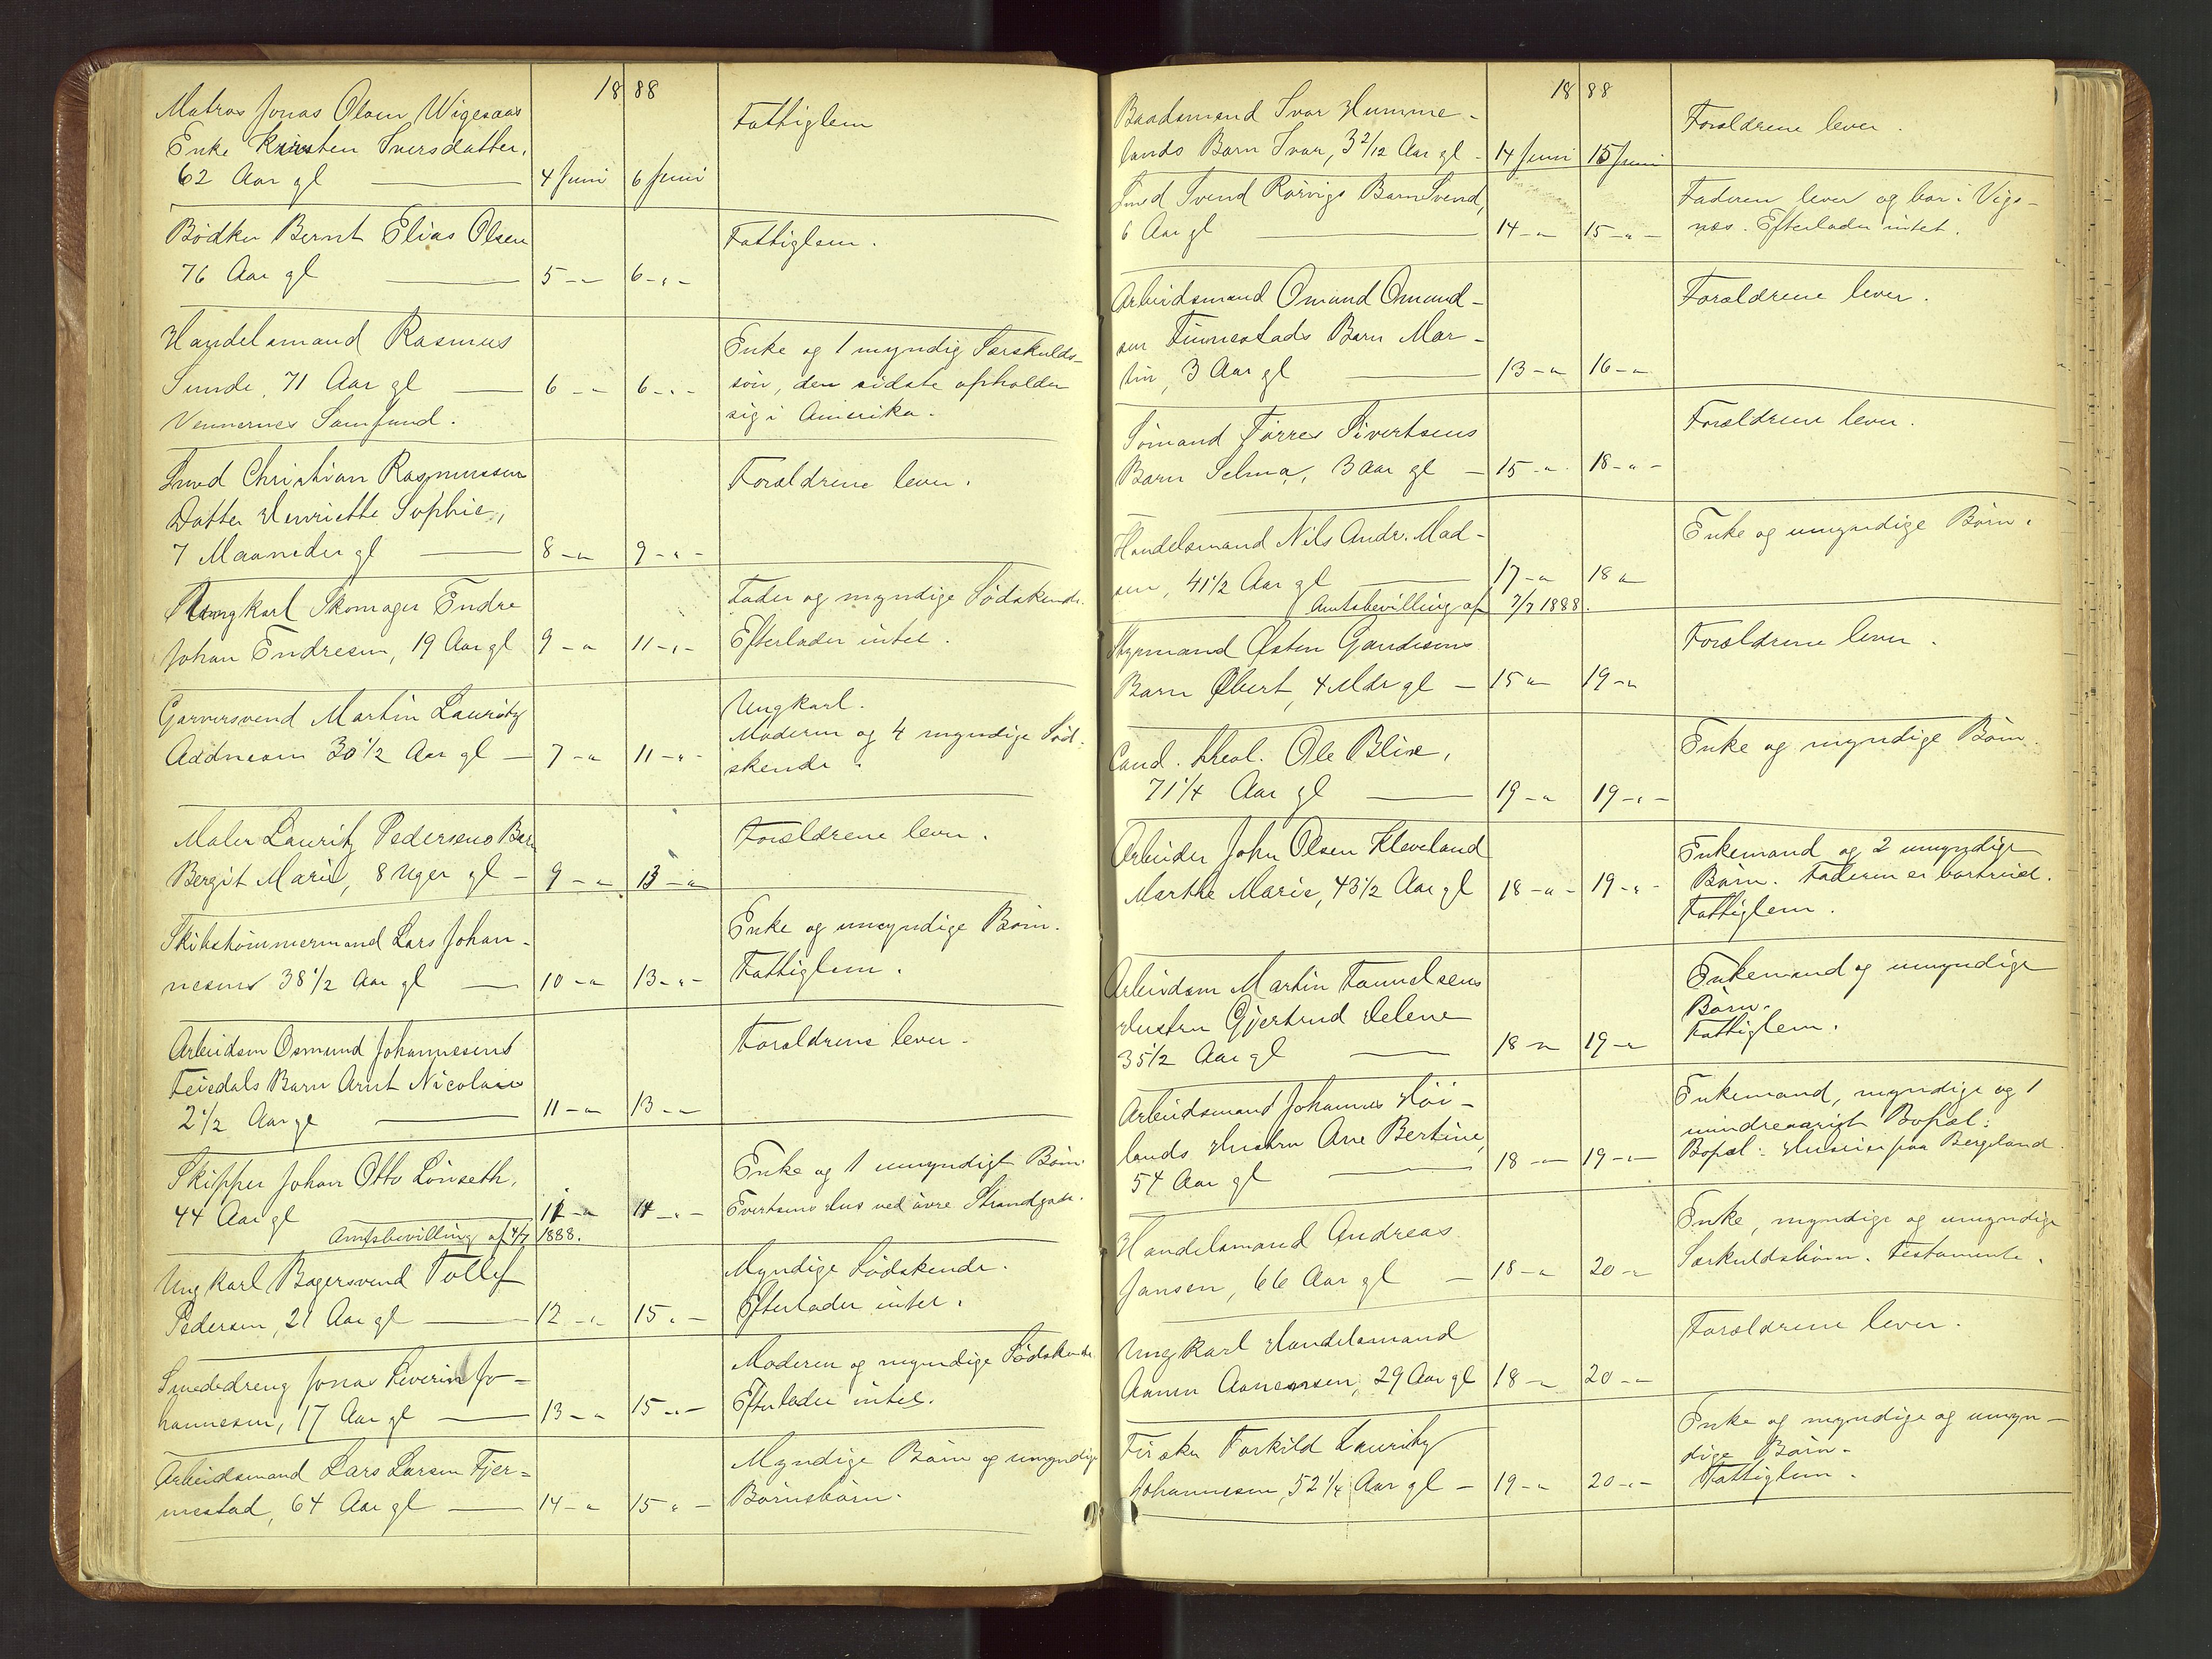 1888
Matros Jonas Olsen Wigesaas
Enke Kirsten Iversdatter,
62 Aar gl — 4 Juni 6 Juni
Fattiglem
Bödker Bernt Elias Olsen
76 Aar gl — 5 -"- 6 -"-
Fattiglem.
Handelsmand Rasmus
Sunde, 71 Aar gl — 6 -"- 6 -"-
Vennernes Samfund.
Enke og 1 myndig Særskulds-
søn, den sidste opholder
sig i Amerika.
Smed Christian Rasmussen
Datter Henriette Sophie,
7 Maaneder gl — 8 -"- 9 -"-
Forældrene lever.
Ungkarl Skomager Endre
Johan Endresen, 19 Aar gl 9 -"- 11 -"-
Fader og myndige Södskende.
Efterlader intet.
Garversvend Martin Lauritz
Addnesen 30 1/2 Aar gl — 7 -"- 11 -"-
Ungkarl.
Moderen og 4 myndige Söd-
skende.
Maler Lauritz Pedersens Barn
Bergit Marie, 8 Uger gl — 9 -"- 13 -"-
Forældrene lever.
Skibstömmermand Lars Johan-
nesens 38 1/2 Aar gl — 10 -"- 13 -"-
Enke og umyndige Börn.
Fattiglem.
Arbeidsm Osmund Johannesens
Feisdals Barn Arnt Nicolai
2 1/2 Aar gl — 11 -"- 13 -"-
Forældrene lever.
Skipper Johan Otto Lönseth,
44 Aar gl 11 -"- 14 -"-
Amtsbevilling af 4/7 1888.
Enke og 1 umyndigt Barn
Evertsens Hus ved övre Strandgade.
Ungkarl Bagersvend Tollef
Pedersen, 21 Aar gl — 12 -"- 15 -"-
Myndige Södskende.
Efterlader intet.
Smededreng Jonas Severin Jo-
hannesen, 17 Aar gl — 13 -"- 15 -"-
Moderen og myndige Södskende
Efterlader intet.
Arbeidsmand Lars Larsen Tjer-
mestad, 64 Aar gl — 14 -"- 15 -"-
Myndige Börn og umyndige
Börnebörn.
1888
Baadsmand Ivar Humme-
lands Barn Ivar, 3 2/12 Aar gl - 14 Juni 15 Juni
Forældrene lever.
Smed Svend Rörvigs Barn Svend,
6 Aar gl — 14 -"- 15 -"-
Faderen lever og bor i Vigs-
næs. Efterlader intet.
Arbeidsmand Omund Omund-
sen Finnestads Barn Mar-
tin, 3 Aar gl — 13 -"- 16 -"-
Forældrene lever.
Sömand Törres Sivertsens
Barn Selma, 3 Aar gl — 15 -"- 18 -"-
Forældrene lever.
Handelsmand Nils Andr. Mad-
sen, 41 1/2 Aar gl — 17 -"- 18 "
Amtsbevilling af 7/7 1888.
Enke og umyndige Börn.
Styrmand Østen Gaudesens
Barn Øbert, 4 Mdr gl — 15 " 19 -"
Forældrene lever.
Cand. theol. Ole Blix,
71 1/4 Aar gl — 19 -"- 19 -"-
Enke og myndige Börn.
Arbeider John Olsen Kleveland
Marthe Marie, 43 1/2 Aar gl 18 -"- 19 -"-
Enkemand og 2 umyndige
Börn. Faderen er bortreist.
Fattiglem.
Arbeidsm Martin
Hustru Gjertrud Helene
35 1/2 Aar gl — 18 -"- 19 -"-
Enkemand og umyndige
Börn.
Fattiglem.
Arbeidsmand Johannes Höi-
lands Hustru Ane Bertine,
54 Aar gl — 18 -"- 19 -"-
Enkemand, myndige og 1
mindreaarigt Bopæl:
Bopæl: paa Bergeland.
Handelsmand Andreas
Jansen, 66 Aar gl — 18 -"- 20 -"-
Enke, myndige og umyndige
Særkuldsbörn. Testamente.
Ungkarl Handelsmand
Aanen Aanensen, 29 Aar gl 18 -"- 20 -"-
Forældrene lever.
Fisker Torkild Lauritz
Johannesen, 52 1/4 Aar gl — 19 -"- 20 -"-
Enke og myndige og umyn-
dige Börn.
Fattiglem.